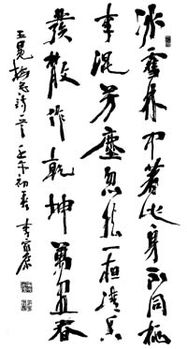 冰雪林中著此身不同桃
李混芳塵忽然一夜清香
發散作乾坤萬里春
王冕梅花詩一首 壬午初春 李